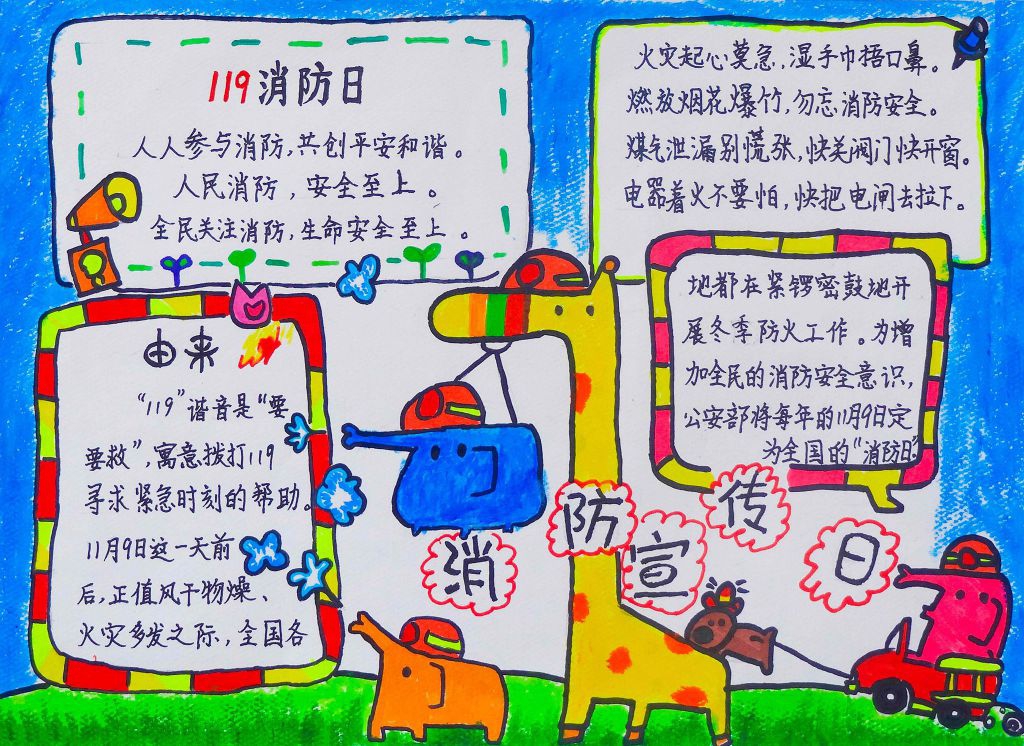 119消防日
人人参与消防,共创平安和谐。
人民消防,安全至上。
全民关注消防,生命安全至上。
火灾起心莫急,湿手巾捂口鼻。
燃放烟花爆竹,勿忘消防安全。
煤气泄漏别慌张,快关阀门快开窗。
电器着火不要怕,快把电闸去拉下。
由来
“119”谐音是“要
要救”,寓意拨打119
寻求紧急时刻的帮助。
11月9日这一天前
后,正值风干物燥、
火灾多发之际,全国各
地都在紧锣密鼓地开
展冬季防火工作。为增
加全民的消防安全意识,
公安部将每年的11月9日定
为全国的“消防日”
消防宣传日